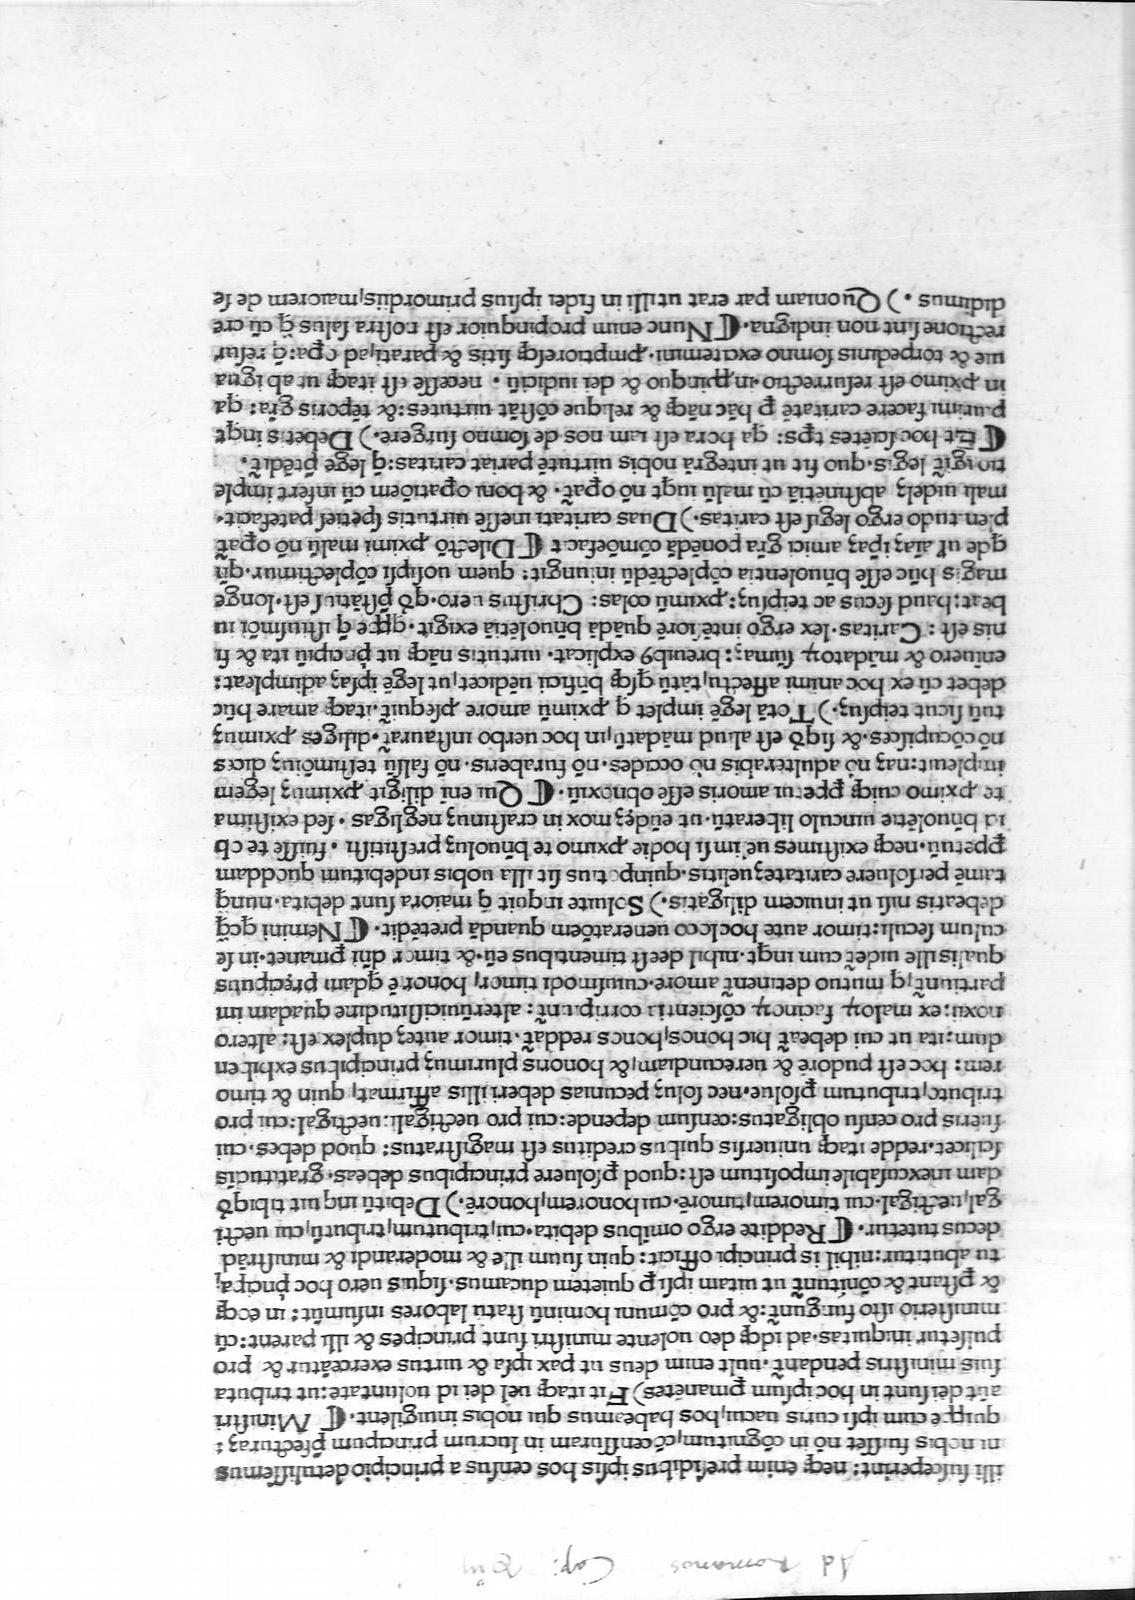 Ad Romanos Cap: XIII
illi susceperint: neqꝫ enim presidibus ipsis hos census a principio detulissemus
ni nobis fuisset nō in cōgnitum, cōcensturam in lucrum principum pfecturaꝫ:
quippe cum ipsi curis uacui, hos habeamus qui nobis inuigilent. ⸿ Ministri
aūt dei sunt in hoc ipsum pmanētes) Fit itaqꝫ uel dei id uoluntate: ut tributa
suis ministris pendant̃. uult enim deus ut pax ipsa & uirtus exerceātur & pro
pulsetur iniquitas. ad idqꝫ deo uolente ministri sunt principes & illi parent: cū
ministerio isto fungunt̃: & pro cōmuni hominū statu labores insumūt: in eoqꝫ
& pstant & cōnitunt̃ ut uitam ipsi p quietem ducamus. siquis uero hoc pncipa,
tu abutitur: nihil is principi officit: quin suum ille & moderandi & ministrād
decus tutetur. ⸿ Reddite ergo omibus debita. cui, tributum, tributū, cui uecti
gal, uectigal. cui timorem, timorē. cui honorem, honorē.) Debitū inquit tibi qđ
dam inexcusabile impositum est: quod psoluere principibus debeas. gratitudīs
scilicet. redde itaqꝫ uniuersis quibus creditus est magistratus: quod debes. cui
fueris pro censu obligatus: censum depende: cui pro uectigali: uectigal: cui pro
tributo, tributum psolue. nec soluꝫ pecunias deberi illis affirmat, quin & timo
rem: hoc est pudorē & uerecundiam, & honoris plurimuꝫ principibus exhiben
dum: ita ut cui debeat̃ hic honos, honos reddat̃. timor auteꝫ duplex est: altero
noxii: ex maloꝝ facinoꝝ cōscientia corripiunt̃: alterū uicissitudine quadam im
partiunt̃, q mutuo detinent̃ amore. cuiusmodi timor, honorē qdam precipuus
qualis ille uidet̃ cum inqt. nihil deest timentibus eū & timor dñi pmanet. in se
culum seculi: timor aute hoc loco ueneratōem quandā pretēdit. ⸿ Nemini qcq̄
debeatis nisi ut inuicem diligatis.) Soluite inquit q̄ maiora sunt debita. nunq
tamē persoluere caritateꝫ uelitis. quinpotius sit illa uobis indebitum quoddam
ppetuū. neqꝫ existimes ue im si hodie proximo te bn̄uoluꝫ prestitisti. fuisse te ob
id bn̄uolētie uinculo liberatū. ut eūdeꝫ mox in crastinuꝫ negligas. sed existima
te proximo cuiqꝫ ppetui amoris esse obnoxiū. ⸿ Qui eni diligit proximuꝫ legem
impleuit: naꝫ nō adulterabis nō occides. nō furaberis. nō falsū testimōiuꝫ dices
nō cōcupisces. & siqđ est aliud mādatū, in hoc uerbo instaurat̃. diliges proximuꝫ
tuū sicut teipsuꝫ.) Totā legē implet q proximū amore prosequit̃. itaqꝫ amare hūc
debet cū ex hoc animi affectu, tātū qsqꝫ bn̄fici uēdicet, ut legē ipsaꝫ adimpleat:
eniuero & mādatoꝝ sūmaꝫ: breuibꝰ explicat. uirtutis nāqꝫ ut pcipiū ita & fi
nis est: Caritas. lex ergo intēsiorē quādā bn̄uolētiā exigit. qppe q̄ istiusmōi iu
beat: haud secus ac teipsuꝫ: proximū colas: Christus uero. qđ pstātius est. longe
magis hūc esse bn̄uolentia cōplectēdū iniungit: quem uosipsi cōplectimur. qn̄
qde uł aīaꝫ ipāꝫ amici grā ponēdā cōmōefacit ⸿ Dilectō proximi malū nō opat̃
plen tudo ergo legis est caritas.) Duas caritati inesse uirtutis species patefacit.
mali uideliꝫ abstinētiā cū malū inqt nō opat̃. & boni opatiōem cū infert imple
tio igit̃ legis. quo fit ut integrā nobis uirtutē pariat caritas: q legē ptēdit̃.
⸿ Et hoc sciētes tps: qa hora est iam nos de somno surgere.) Debetis inqt
plurimi facere caritatē p hāc nāqꝫ & relique cōstāt uirtutes: & tēporis grā: qa
in proximo est resurrectio. in ppinquo & dei iudiciū. necesse est itaqꝫ ut ab igna
uie & torpedinis somno excitemini. promptioresqꝫ sitis & parati, ad opa: q̄ resur
rectione sint non indigna. ⸿ Nunc enim propinquior est nostra salus q̄ cū cre
didimus.) Quoniam par erat ut illi in fidei ipsius primordiis, maiorem de se